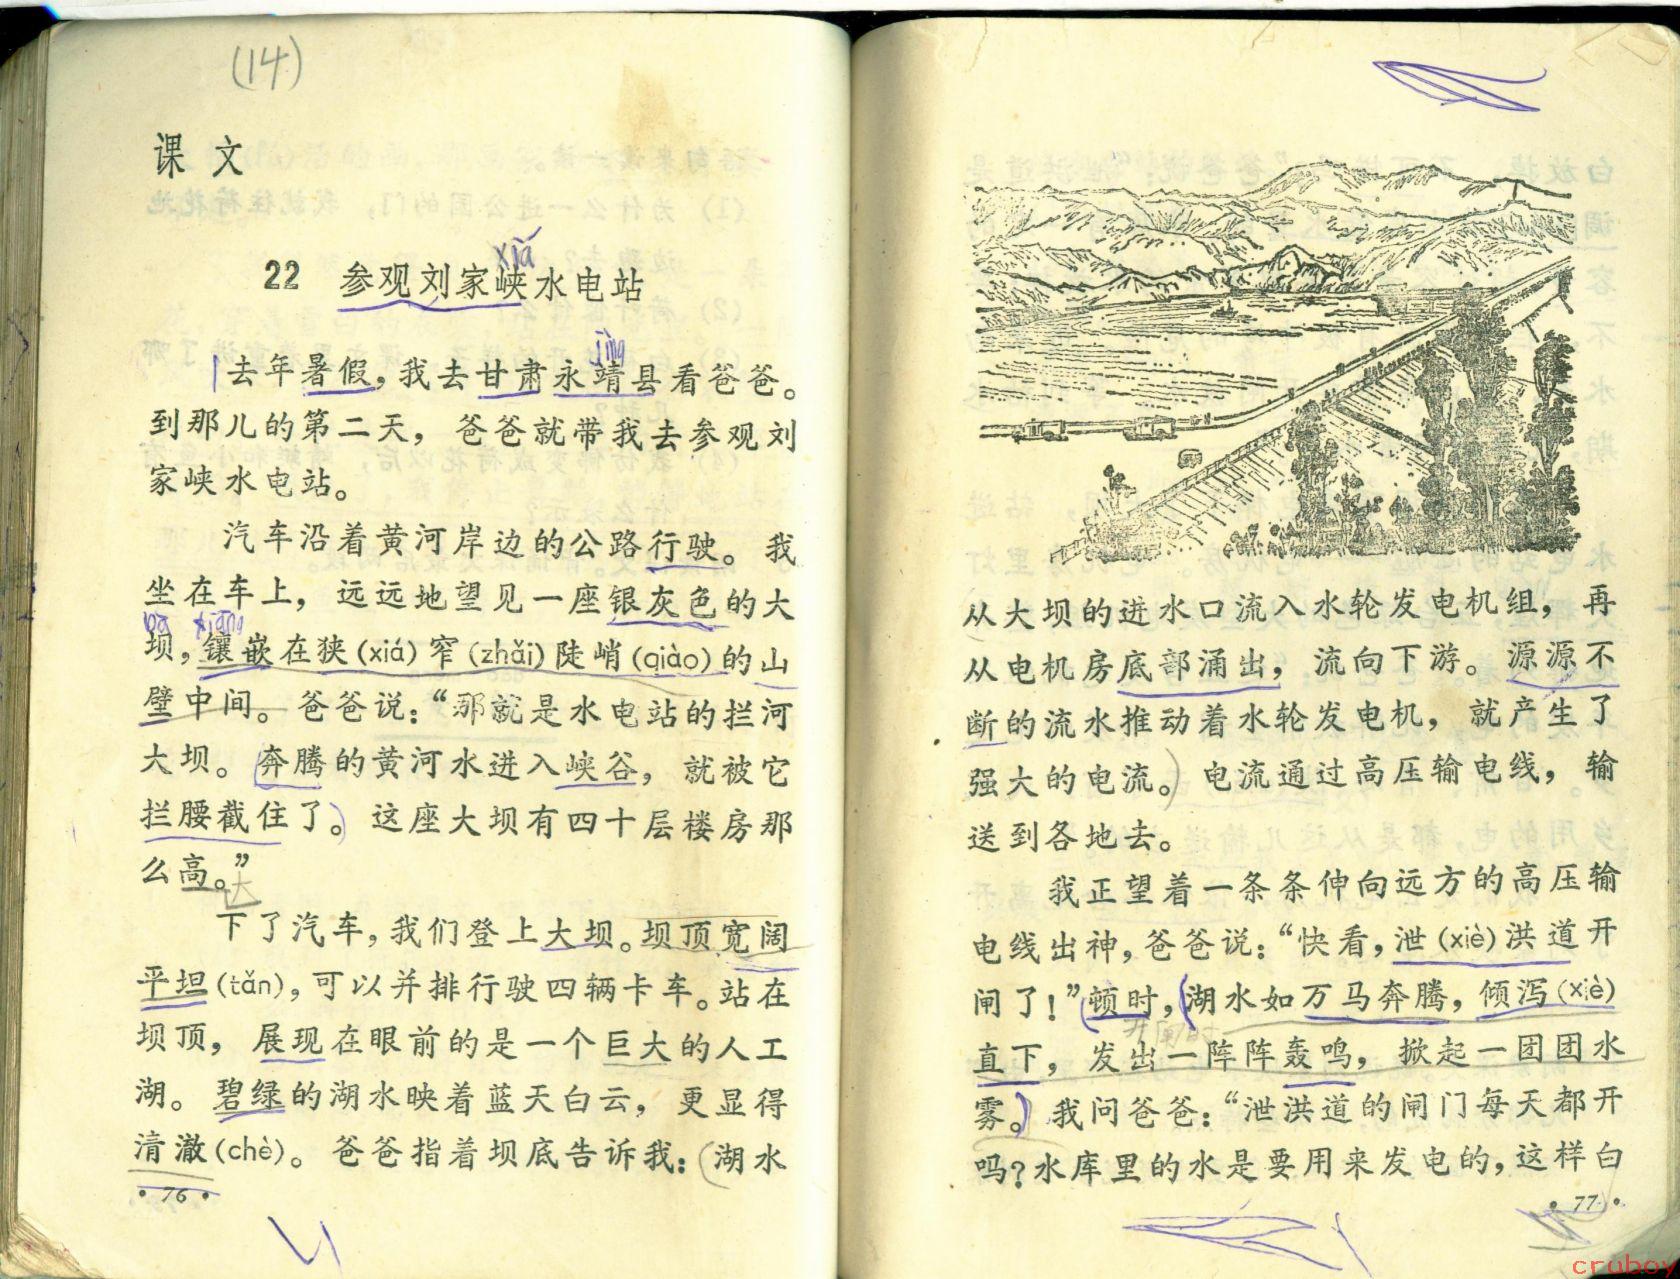 (14)
课文
xiá
22 参观刘家峡水电站
jìng
去年暑假，我去甘肃永靖县看爸爸。
到那儿的第二天，爸爸就带我去参观刘
家峡水电站。
汽车沿着黄河岸边的公路行驶。我
坐在车上，远远地望见一座银灰色的大
bà xiāng
坝，镶嵌在狭(xiá)窄(zhǎi)陡峭(qiào)的山
壁中间。爸爸说：“那就是水电站的拦河
大坝。奔腾的黄河水进入峡谷，就被它
拦腰截住了。这座大坝有四十层楼房那
么高。”
大
下了汽车，我们登上大坝。坝顶宽阔
平坦(tǎn)，可以并排行驶四辆卡车。站在
坝顶，展现在眼前的是一个巨大的人工
湖。碧绿的湖水映着蓝天白云，更显得
清澈(chè)。爸爸指着坝底告诉我：(湖水
·76·
从大坝的进水口流入水轮发电机组，再
从电机房底部涌出，流向下游。源源不
断的流水推动着水轮发电机，就产生了
强大的电流。)电流通过高压输电线，输
送到各地去。
我正望着一条条伸向远方的高压输
电线出神，爸爸说：“快看，泄(xiè)洪道开
闸了！”顿时，湖水如万马奔腾，倾泻(xiè)
开闸时
直下，发出一阵阵轰鸣，掀起一团团水
雾。我问爸爸：“泄洪道的闸门每天都开
吗？水库里的水是要用来发电的，这样白
·77·
cruboy